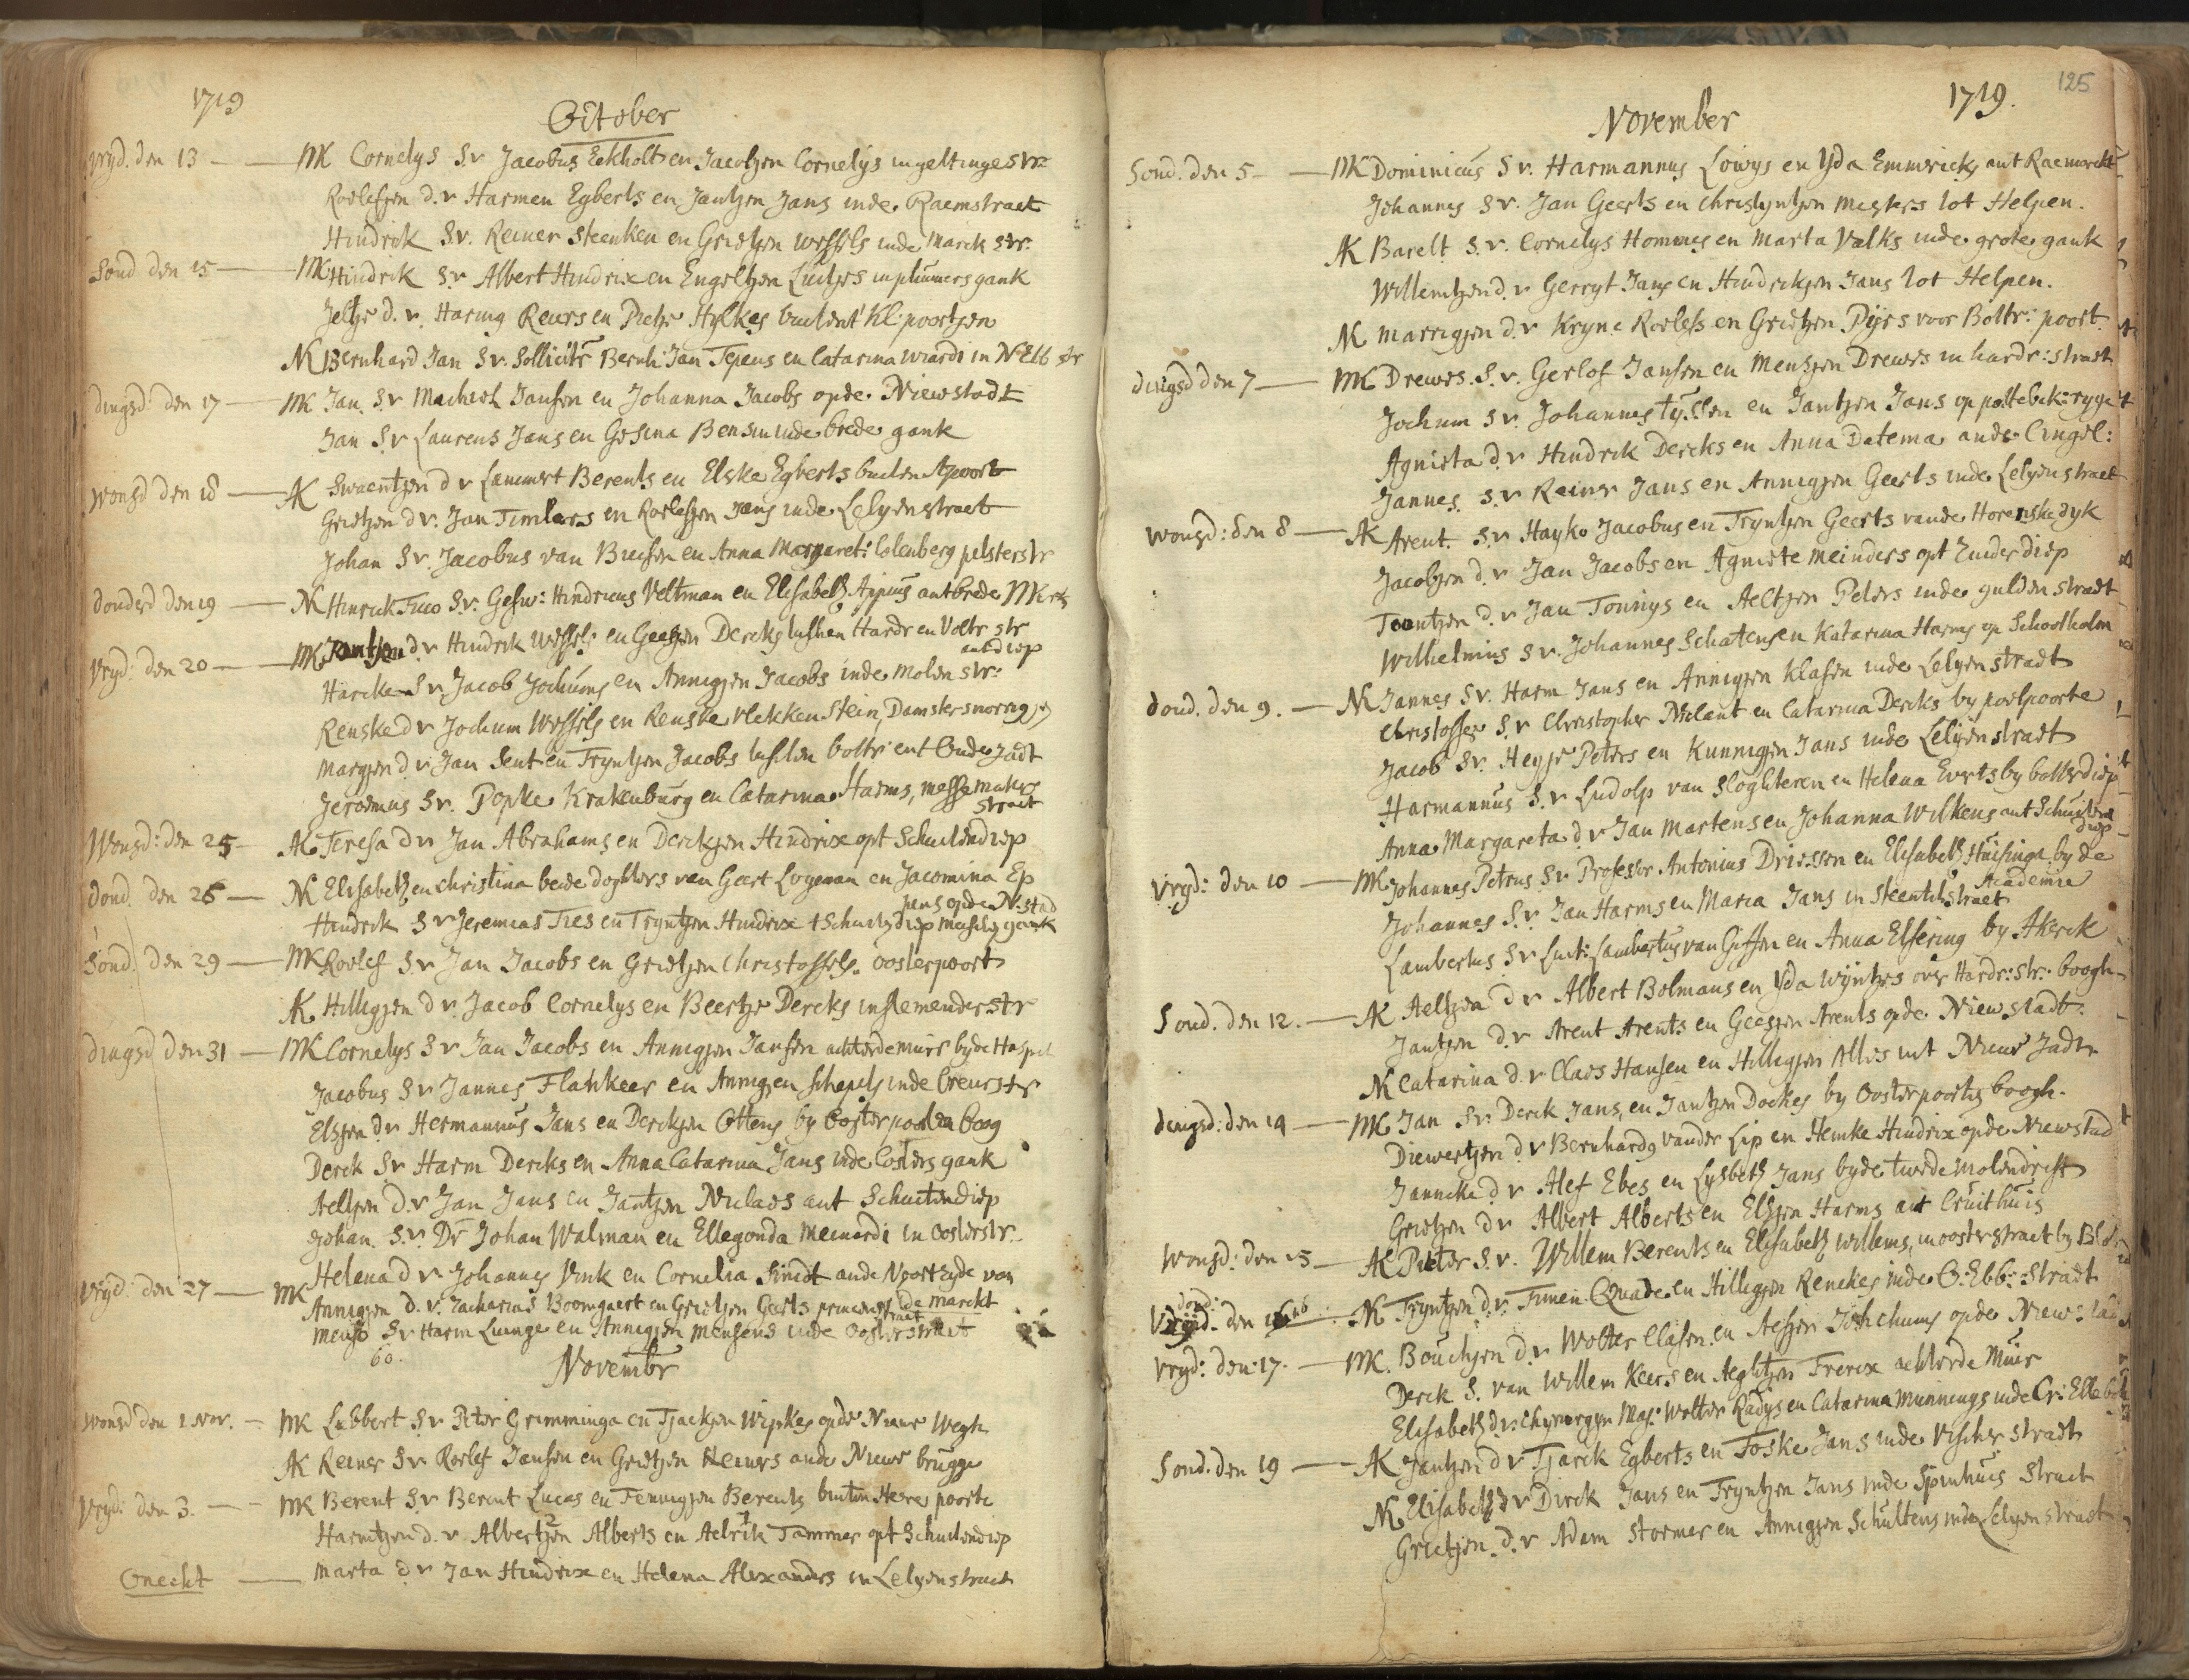 1719
October
vryd. den 13 — MK Cornelys S v Jacobus Eekholt en Jacobjen Cornelys in geltinge str:
Roelefjen d. v Harmen Egberts en Jantjen Jans inde Raemstraet
Hindrik S v. Reiner Steenken en Grietjen Wessels inde Marck str:
Sond den 15 — MK Hindrik S v Albert Hindrix en Engeltjen Luitjes in plumers gank
Jeltje d. v. Haring Reiers en Pietje Hylkes buiten't Kl: poortjen
NK Bernhard Jan S v. Sollicitr Bernh: Jan Tepens en Catarina Wiardi in N Ebb str
dingsd den 17 — MK Jan S v Machiel Jansen en Johanna Jacobs op de Niewstadt
Jan S v Laurens Jans en Gesina Bensin inde brede gank
Wonsd den 18 — AK Swaentjen d v Lammert Berents en Elske Egberts buiten Apoort
Grietjen d v. Jan Timlers en Roelefjen Jans inde Lelyenstraet
Johan S v. Jacobus van Buesen en Anna Margaret: Colenberg pelsterstr
donderd den 19 — NK Hinrick Tuco S v. Gesw: Hindricus Veltman en Elisabeth Appius ant brede Mkt
Vryd: den 20 — MK Jantjen d v Hindrik Wessels en Geesjen Dercks tusschen Hardr en Boltr str
ant diep
Harcke S v Jacob Jochums en Annigjen Jacobs inde molen str:
Renske d v Jochum Wessels en Renske Vlekkenstein, Damster
Margjen d v Jan Sent en Tryntjen Jacobs tussen boltr: ent Oude Jadt
Jeroemus S v. Popke Krakenburg en Catarina Harms, messemakers
straet
Wonsd: den 25 — AK Teresa d v Jan Abrahams en Derckjen Hindrix opt Schuitendiep
dond. den 26 — NK Elisabeth en Christina beide doghters van Geert Logeman en Jacomina Ep
pens op de N: stad
Hindrik S v Jeremias Ties en Tryntjen Hindrix t Schuitendiep gank
Sond. den 29 — MK Roelef S v Jan Jacobs en Grietjen Christoffels. Oosterpoort
AK Hilligjen d v. Jacob Cornelys en Beertje Dercks in Slemender str
dingsd den 31 — MK Cornelys S v Jan Jacobs en Annigjen Jansen achter de muire by de Haspel
Jacobus S v Jannes Flatkeer en Annigjen Schepels inde Creus str
Elsjen d v Hermannus Jans en Derckjen Ottens by Oosterpoorten boog
Derck S v Harm Dercks en Anna Catarina Jans inde Costers gank
Aeltjen d. v Jan Jans en Jantjen Niclaes ant Schuitendiep
Johan. S. v. Dr Johan Walman en Ellegonda Meinardi in Oosterstr.
Vryd: den 27 — MK Helena d v Johannes Vink en Cornelia Smidt ande Noortzyde van
de marckt
Annigjen d. v. Zacharias Boomgaert en Grietjen Geerts princens
straet
Menso S v Harm Luinge en Annigjen Mensens inde Oosterstraet
60.
Novembr
Wonsd den 1 Nov. — MK Lubbert S v Piter Grimminga en Tjackjen Wipkes op de Nieue Wegh
AK Reiner S v Roelef Jansen en Grietjen Heines ande Nieue brugge
Vryd: den 3. — MK Berent S v Berent Lucas en Fennigjen Berents buiten Here poorte
Harmtjen d. v. Albertjen Alberts en Aelrik Tammes opt Schuitendiep
Onecht — Marta d v Jan Hindrix en Helena Alexanders in Lelyenstraet
125
1719.
November
Sond. den 5 — MK Dominicus S v. Harmannus Lowys en Yda Emmerick, ant Raemarckt
Johannes S v. Jan Geerts en Christyntjen Mesters tot Helpen.
AK Barelt S. v. Cornelys Hommes en Marta Valks inde grote gank
Willemtjen d. v Gerryt Jans en Hindrickjen Jans tot Helpen.
NK Marrigjen d. v Kryne Roelefs en Grietjen Pyrs voor Boltr: poort.
dingsd den 7 — MK Drewes. S. v. Gerlof Jansen en Mentjen Drewes in hardr: straet
Jochum S v. Johannes Tyssen en Jantjen Jans op pottebck: ryge
Agnieta d. v Hindrik Dercks en Anna Datema ande Cingel:
Jannes. S. v Reiner Jans en Annigjen Geerts inde Lelyenstraet
Wonsd: den 8 — AK Arent. S. v Hayko Jacobus en Tryntjen Geerts vande Horenskedyk
Jacobjen d. v Jan Jacobs en Agniete Meinders opt Zuiderdiep
Toontjen d. v Jan Tonnys en Aeltjen Peters inde gulden straet
Wilhelmus S v. Johannes Schatensen Katarina Harms op Schoolholm
dond. den 9. — NK Jannes S v. Harm Jans en Annigjen Klasen inde Lelyen straet
Christoffer S. v Christopher Milant en Catarina Dercks by poelpoorte
Jacob S v. Heyje Peters en Kunnigjen Jans inde Lelyenstraet
Harmannus S. v Ludolp van Sloghteren en Helena Everts by botterdiep
Anna Margareta d. v Jan Martens en Johanna Wilkens ant Schuiten
diep
Vryd: den 10 — MK Johannes Petrus S v Professor Antonius Driessen en Elisabeth Huisinga by de
Academie
Johannes S. v. Jan Harms en Maria Jans in Steentilstraet
Lambertus S v Luit: Lambertus van Giffen en Anna Elsering by Akerck
Sond. den 12. — AK Aeltjen d v Albert Bolmans en Yda Wyntjes over Hardr: str: boogh
Jantjen d. v Arent Arents en Geesjen Arents op de Niewstadt.
NK Catarina d. v Claes Hansen en Hilligjen Alles int Nieue Jadt
dingsd: den 14 — MK Jan S v Derck Jans, en Jantjen Dockes by Oosterpoorts boogh.
Diewertjen d. v Bernhardg vander Lip en Hemke Hindrix op de Niewstad
Janneke d. v Alef Ebes en Lysbeth Jans by de twede molendrift
Grietjen d v Albert Alberts en Elsjen Harms ant Cruithuis
Wonsd: den 15 — AK Pieter S. v. Willem Berents en Elisabeth Willems, in oosterstraet by
dond: den 16 — NK Tryntjen d. v. Timen Quade en Hilligjen Renekes inde O: Ebb: straet
Vryd: den 17. — MK. Bouchjen d. v Wolter Clasen en Aefjen Jochums op de Niew: stad
Derck S. van Willem Keers en Aeghtjen Frerix achter de Muir
Elisabeth d. v. Chyrorgyn Maj: Wolter Radys en Catarina Munnings inde Cr: Elleboh
Sond. den 19 — AK Jantjen d v Tjarck Egberts en Foske Jans inde Visscher straet
NK Elisabeth d v Dirck Jans en Tryntjen Jans inde Spinhuis straet
Grietjen. d. v Adam Stormer en Annigjen Schultens inde Lelyenstraet